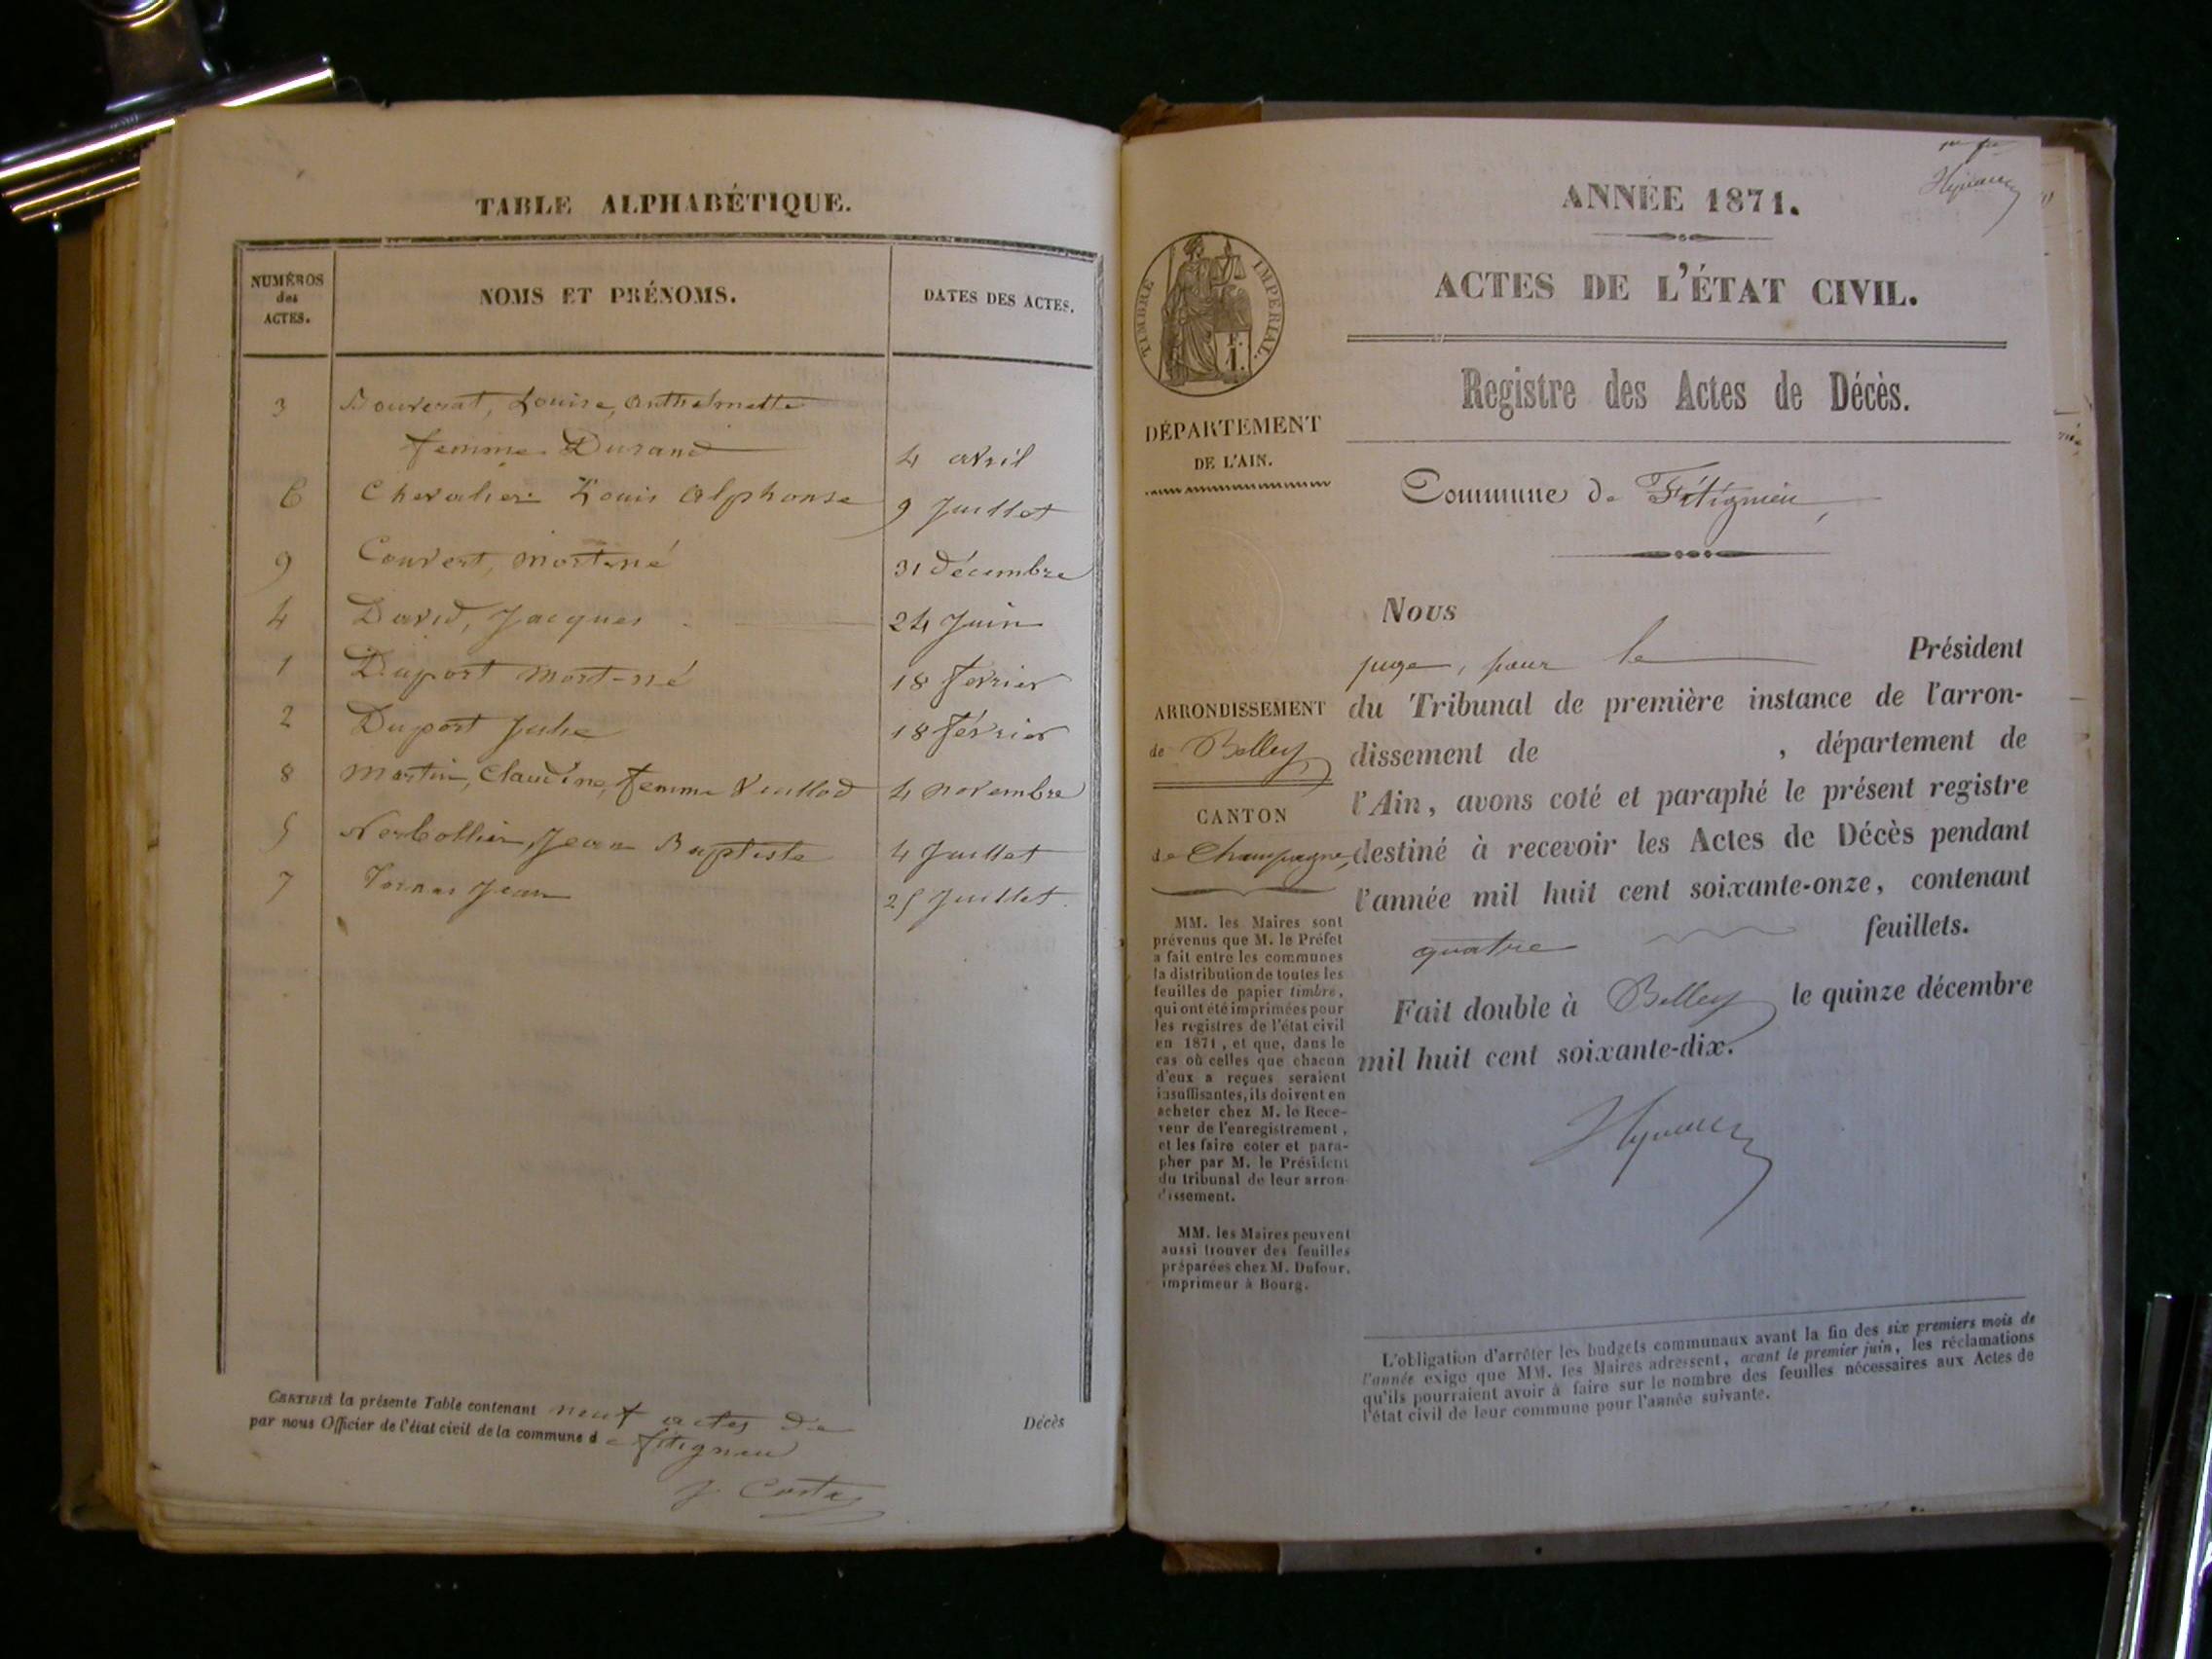 TABLE ALPHABÉTIQUE.
NUMÉROS
des
ACTES.
NOMS ET PRÉNOMS.
DATES DES ACTES.
3 Bouverat, Louise, Anthelmette
femme Durand 4 avril
6 Chevalier Louis Alphonse 9 Juillet
9 Couvert, mort-né 31 décembre
4 David, Jacques 24 Juin
1 Duport mort-né 18 fevrier
2 Duport Julie 18 février
8 Martin, Claudine, femme Vuillod 4 novembre
5 Jean Baptiste 4 Juillet
7 Jean 25 Juillet
CERTIFIÉ la présente Table contenant neuf actes de
par nous Officier de l'état civil de la commune de fitignieu
Décès
J Costaz
ANNÉE 1871.
ACTES DE L'ÉTAT CIVIL.
TIMBRE IMPÉRIAL.
1 F.
Registre des Actes de Décès.
DÉPARTEMENT
DE L'AIN.
Commune de Fitignieu,
Nous
juge, pour le Président
du Tribunal de première instance de l'arron-
dissement de , département de
l'Ain, avons coté et paraphé le présent registre
destiné à recevoir les Actes de Décès pendant
l'année mil huit cent soixante-onze, contenant
quatre feuillets.
Fait double à Belley le quinze décembre
mil huit cent soixante-dix.
ARRONDISSEMENT
de Belley
CANTON
de Champagne,
MM. les Maires sont
prévenus que M. le Préfet
a fait entre les communes
la distribution de toutes les
feuilles de papier timbré,
qui ont été imprimées pour
les registres de l'état civil
en 1871, et que, dans le
cas où celles que chacun
d'eux a reçues seraient
insuffisantes, ils doivent en
acheter chez M. le Rece-
veur de l'enregistrement,
et les faire coter et para-
pher par M. le Président
du tribunal de leur arron-
dissement.
MM. les Maires peuvent
aussi trouver des feuilles
préparées chez M. Dufour,
imprimeur à Bourg.
L'obligation d'arrêter les budgets communaux avant la fin des six premiers mois de
l'année exige que MM. les Maires adressent, avant le premier juin, les réclamations
qu'ils pourraient avoir à faire sur le nombre des feuilles nécessaires aux Actes de
l'état civil de leur commune pour l'année suivante.